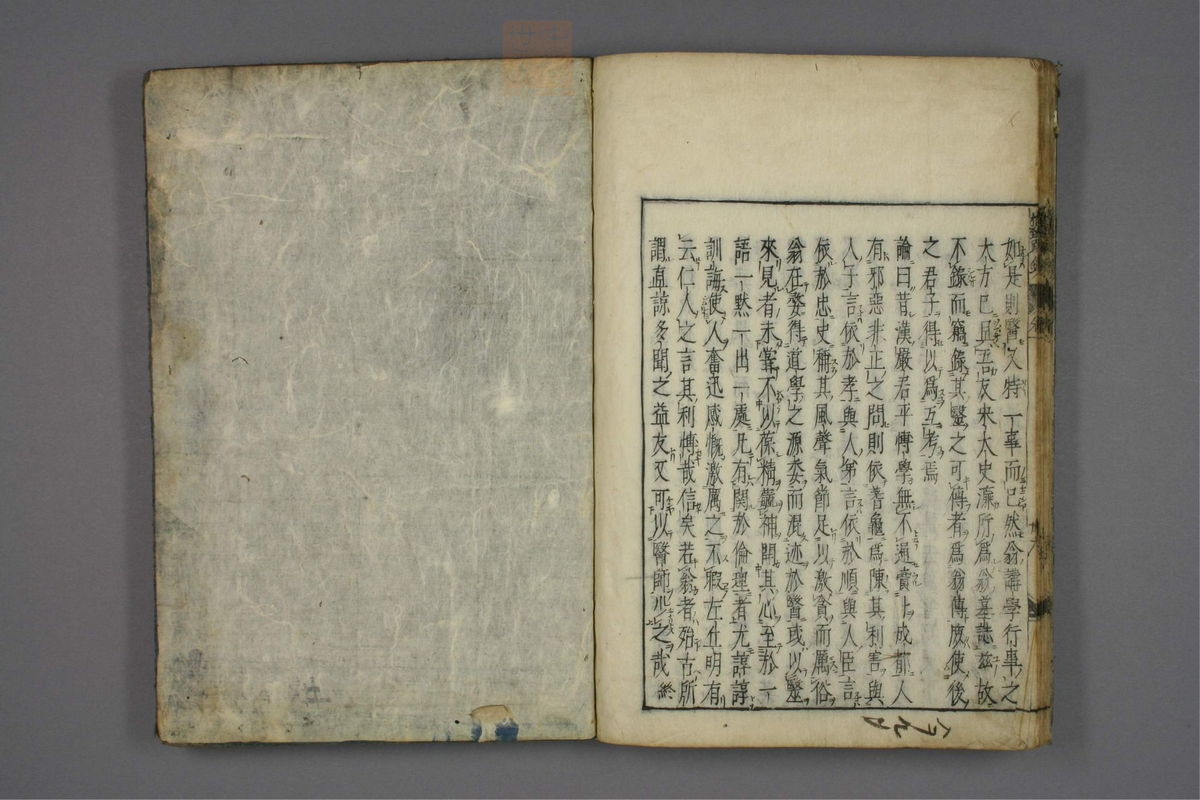 如是則醫又特一事而已然翁講學行事之
大方已且吾友宋太史濂所爲翁墓誌茲故
不錄而竊錄其醫之可傳者爲翁傳庻使後
之君子得以爲互考焉
論曰昔漢嚴君平博學無不通賣卜成都人
有邪惡非正之問則依蓍龜爲陳其利害與
人子言依於孝與人弟言依於順與人臣言
依於忠史稱其風聲氣節足以激貪而厲俗
翁在婺得道學之源委而混迹於醫或以醫
來見者未甞不以葆精毓神開其心至於一
語一默一出一處凡有関於倫理者尤諄諄
訓誨使人奮迅感慨激厲之不暇左丘明有
云仁人之言其利博哉信矣若翁者殆古所
謂直諒多聞之益友又可以醫師少之哉 終